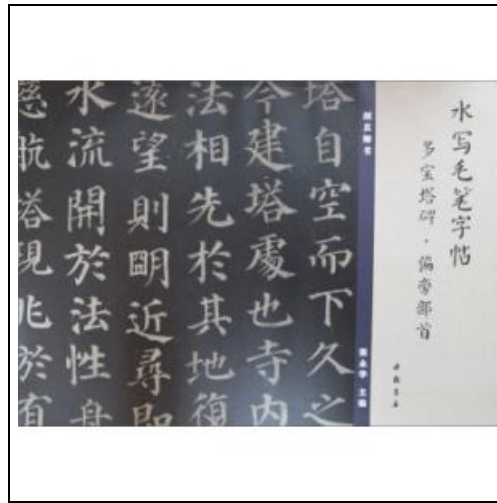 水写毛笔字帖
多宝塔碑·偏旁部首
中国书店
颜真卿书
主编
塔自空而下久之
今建塔處也寺内
法相先於其地復
遠望則朙近尋即
水流開於法性舟
慈航塔現兆於有